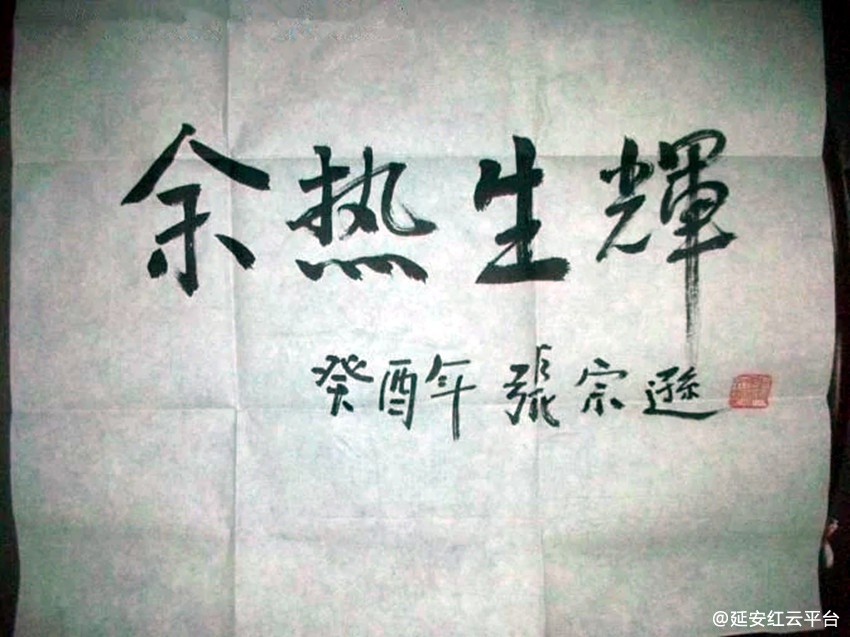 余热生輝
癸酉年 張宗遜
@延安红云平台